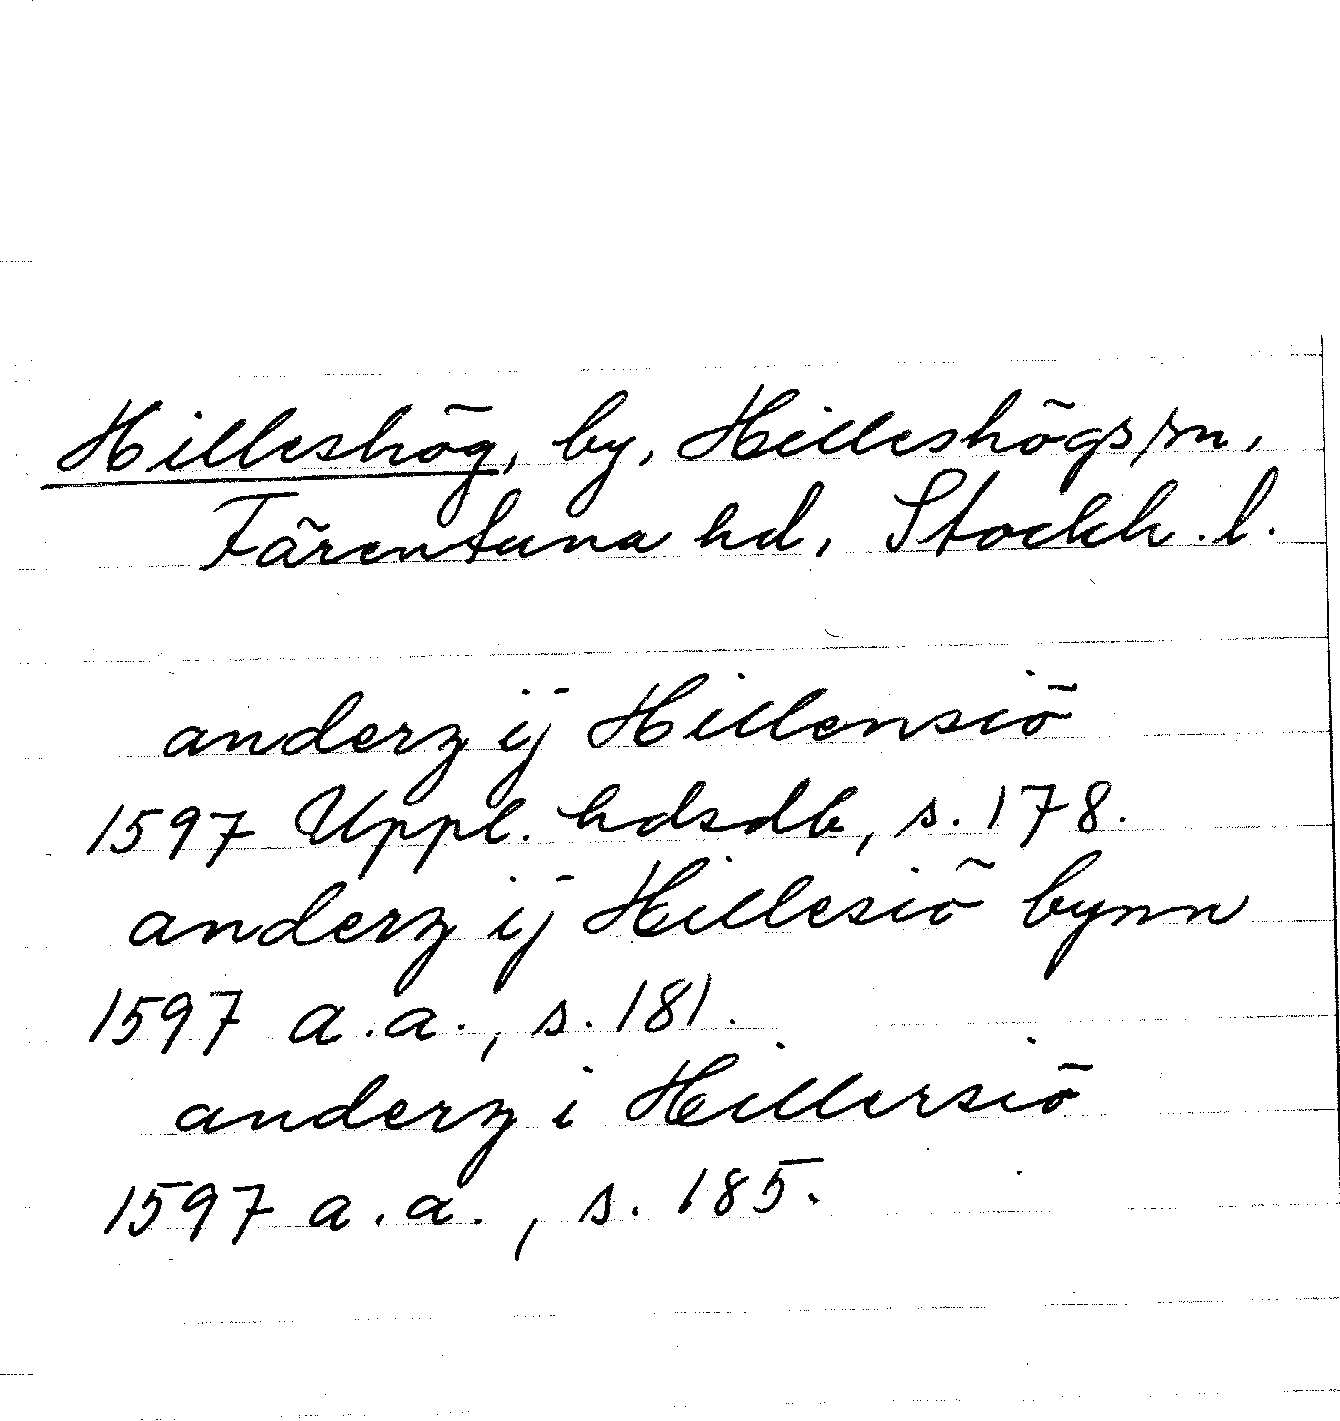 Hilleshög, by, Hilleshögs sn,
Färentuna hd, Stockh. l.
anderz ij Hillensiö
1597 Uppl. hdsdb, s. 178.
anderz ij Hillesiö bynn
1597 a.a., s. 181.
anderz i Hillersiö
1597 a.a., s. 185.